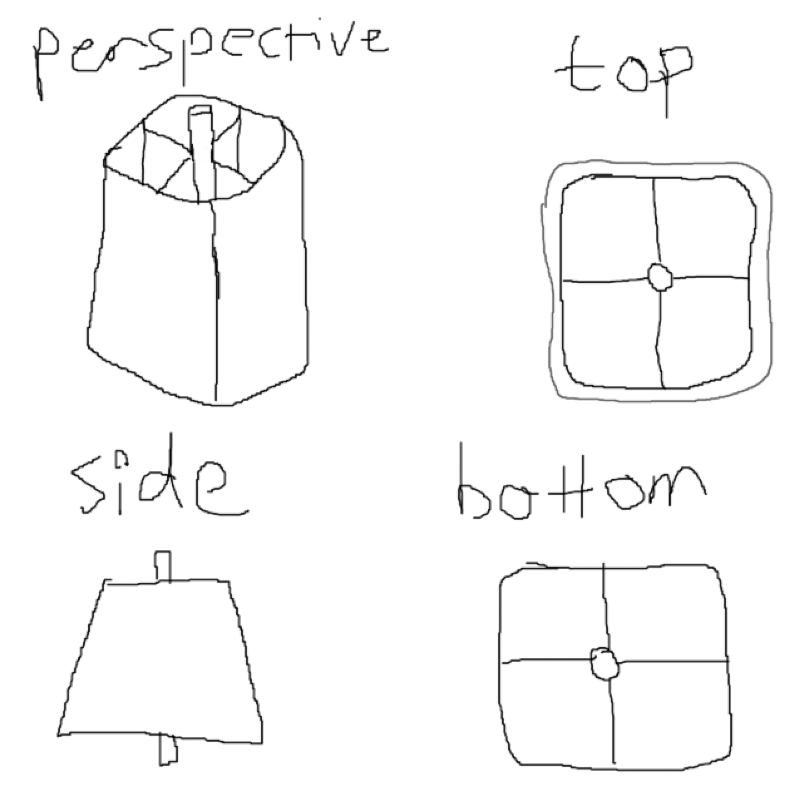 perspective
top
side
bottom